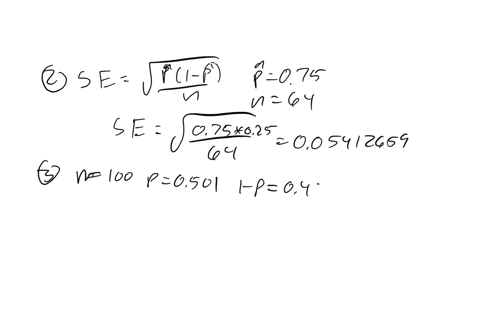 ② SE = √(p̂(1-p̂)/n) p̂ = 0.75
n = 64
SE = √(0.75*0.25/64) = 0.05412659
③ n = 100 p = 0.501 1-p = 0.4